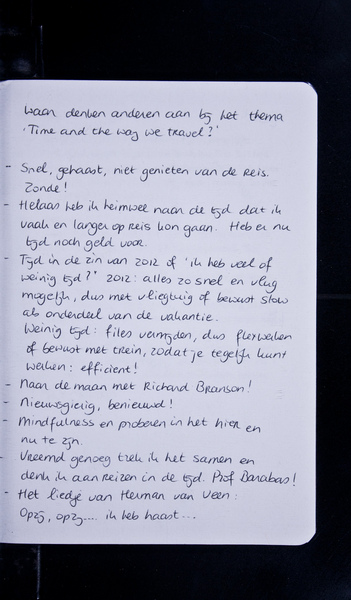 Waar denken anderen aan bij het thema
'Time and the way we travel?'
- Snel, gehaast, niet genieten van de reis.
Zonde!
- Helaas heb ik heimwee naar de tijd dat ik
vaak en langer op reis kon gaan. Heb er nu
tijd noch geld voor.
- Tijd in de zin van 2012 of 'ik heb veel of
weinig tijd?' 2012: alles zo snel en vlug
mogelijk, dus met vliegtuig of bewust slow
als onderdeel van de vakantie.
Weinig tijd: files vermijden, dus flexwerken
of bewust met trein, zodat je tegelijk kunt
werken: efficient!
- Naar de maan met Richard Branson!
- Nieuwsgierig, benieuwd!
- Mindfulness en proberen in het hier en
nu te zijn.
- Vreemd genoeg trek ik het samen en
denk ik aan reizen in de tijd. Prof Barabas!
- Het liedje van Herman van Veen:
Opzij, opzij.... ik heb haast...